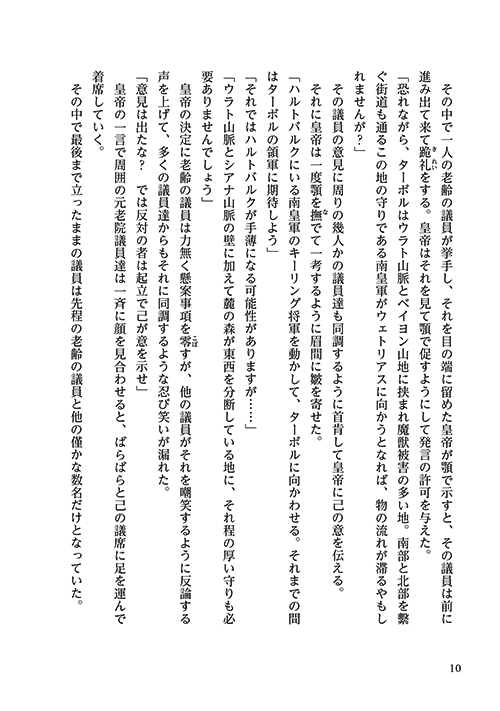 その中で一人の老齢の議員が挙手し、それを目の端に留めた皇帝が顎で示すと、その議員は前に
進み出て来て跪礼をする。皇帝はそれを見て顎で促すようにして発言の許可を与えた。
「恐れながら、ターボルはウラト山脈とベイヨン山地に挟まれ魔獣被害の多い地。南部と北部を繋
ぐ街道も通るこの地の守りである南皇軍がウェトリアスに向かうとなれば、物の流れが滞るやもし
れませんが？」
　その議員の意見に周りの幾人かの議員達も同調するように首肯して皇帝に己の意を伝える。
　それに皇帝は一度顎を撫でて一考するように眉間に皺を寄せた。
「ハルトバルクにいる南皇軍のキーリング将軍を動かして、ターボルに向かわせる。それまでの間
はターボルの領軍に期待しよう」
「それではハルトバルクが手薄になる可能性がありますが……」
「ウラト山脈とシアナ山脈の壁に加えて麓の森が東西を分断している地に、それ程の厚い守りも必
要ありませんでしょう」
　皇帝の決定に老齢の議員は力無く懸案事項を零すが、他の議員がそれを嘲笑するように反論する
声を上げて、多くの議員達からもそれに同調するような忍び笑いが漏れた。
「意見は出たな？　では反対の者は起立で己が意を示せ」
　皇帝の一言で周囲の元老院議員達は一斉に顔を見合わせると、ばらばらと己の議席に足を運んで
着席していく。
　その中で最後まで立ったままの議員は先程の老齢の議員と他の僅かな数名だけとなっていた。
きれい
な
こぼ
10